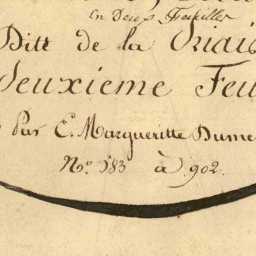 en Deux Feuilles
Dite de la
Deuxieme Feu
Par E. Margueritte Dume
N.º 583 à 902.